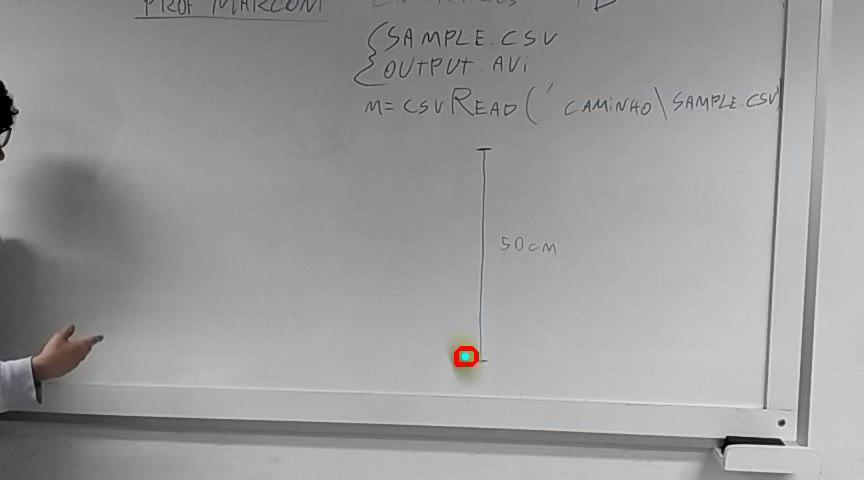 PROF MARCONI
{SAMPLE.CSV
OUTPUT.AVi
M=CSVREAD('CAMINHO\SAMPLE.CSV'
50cm